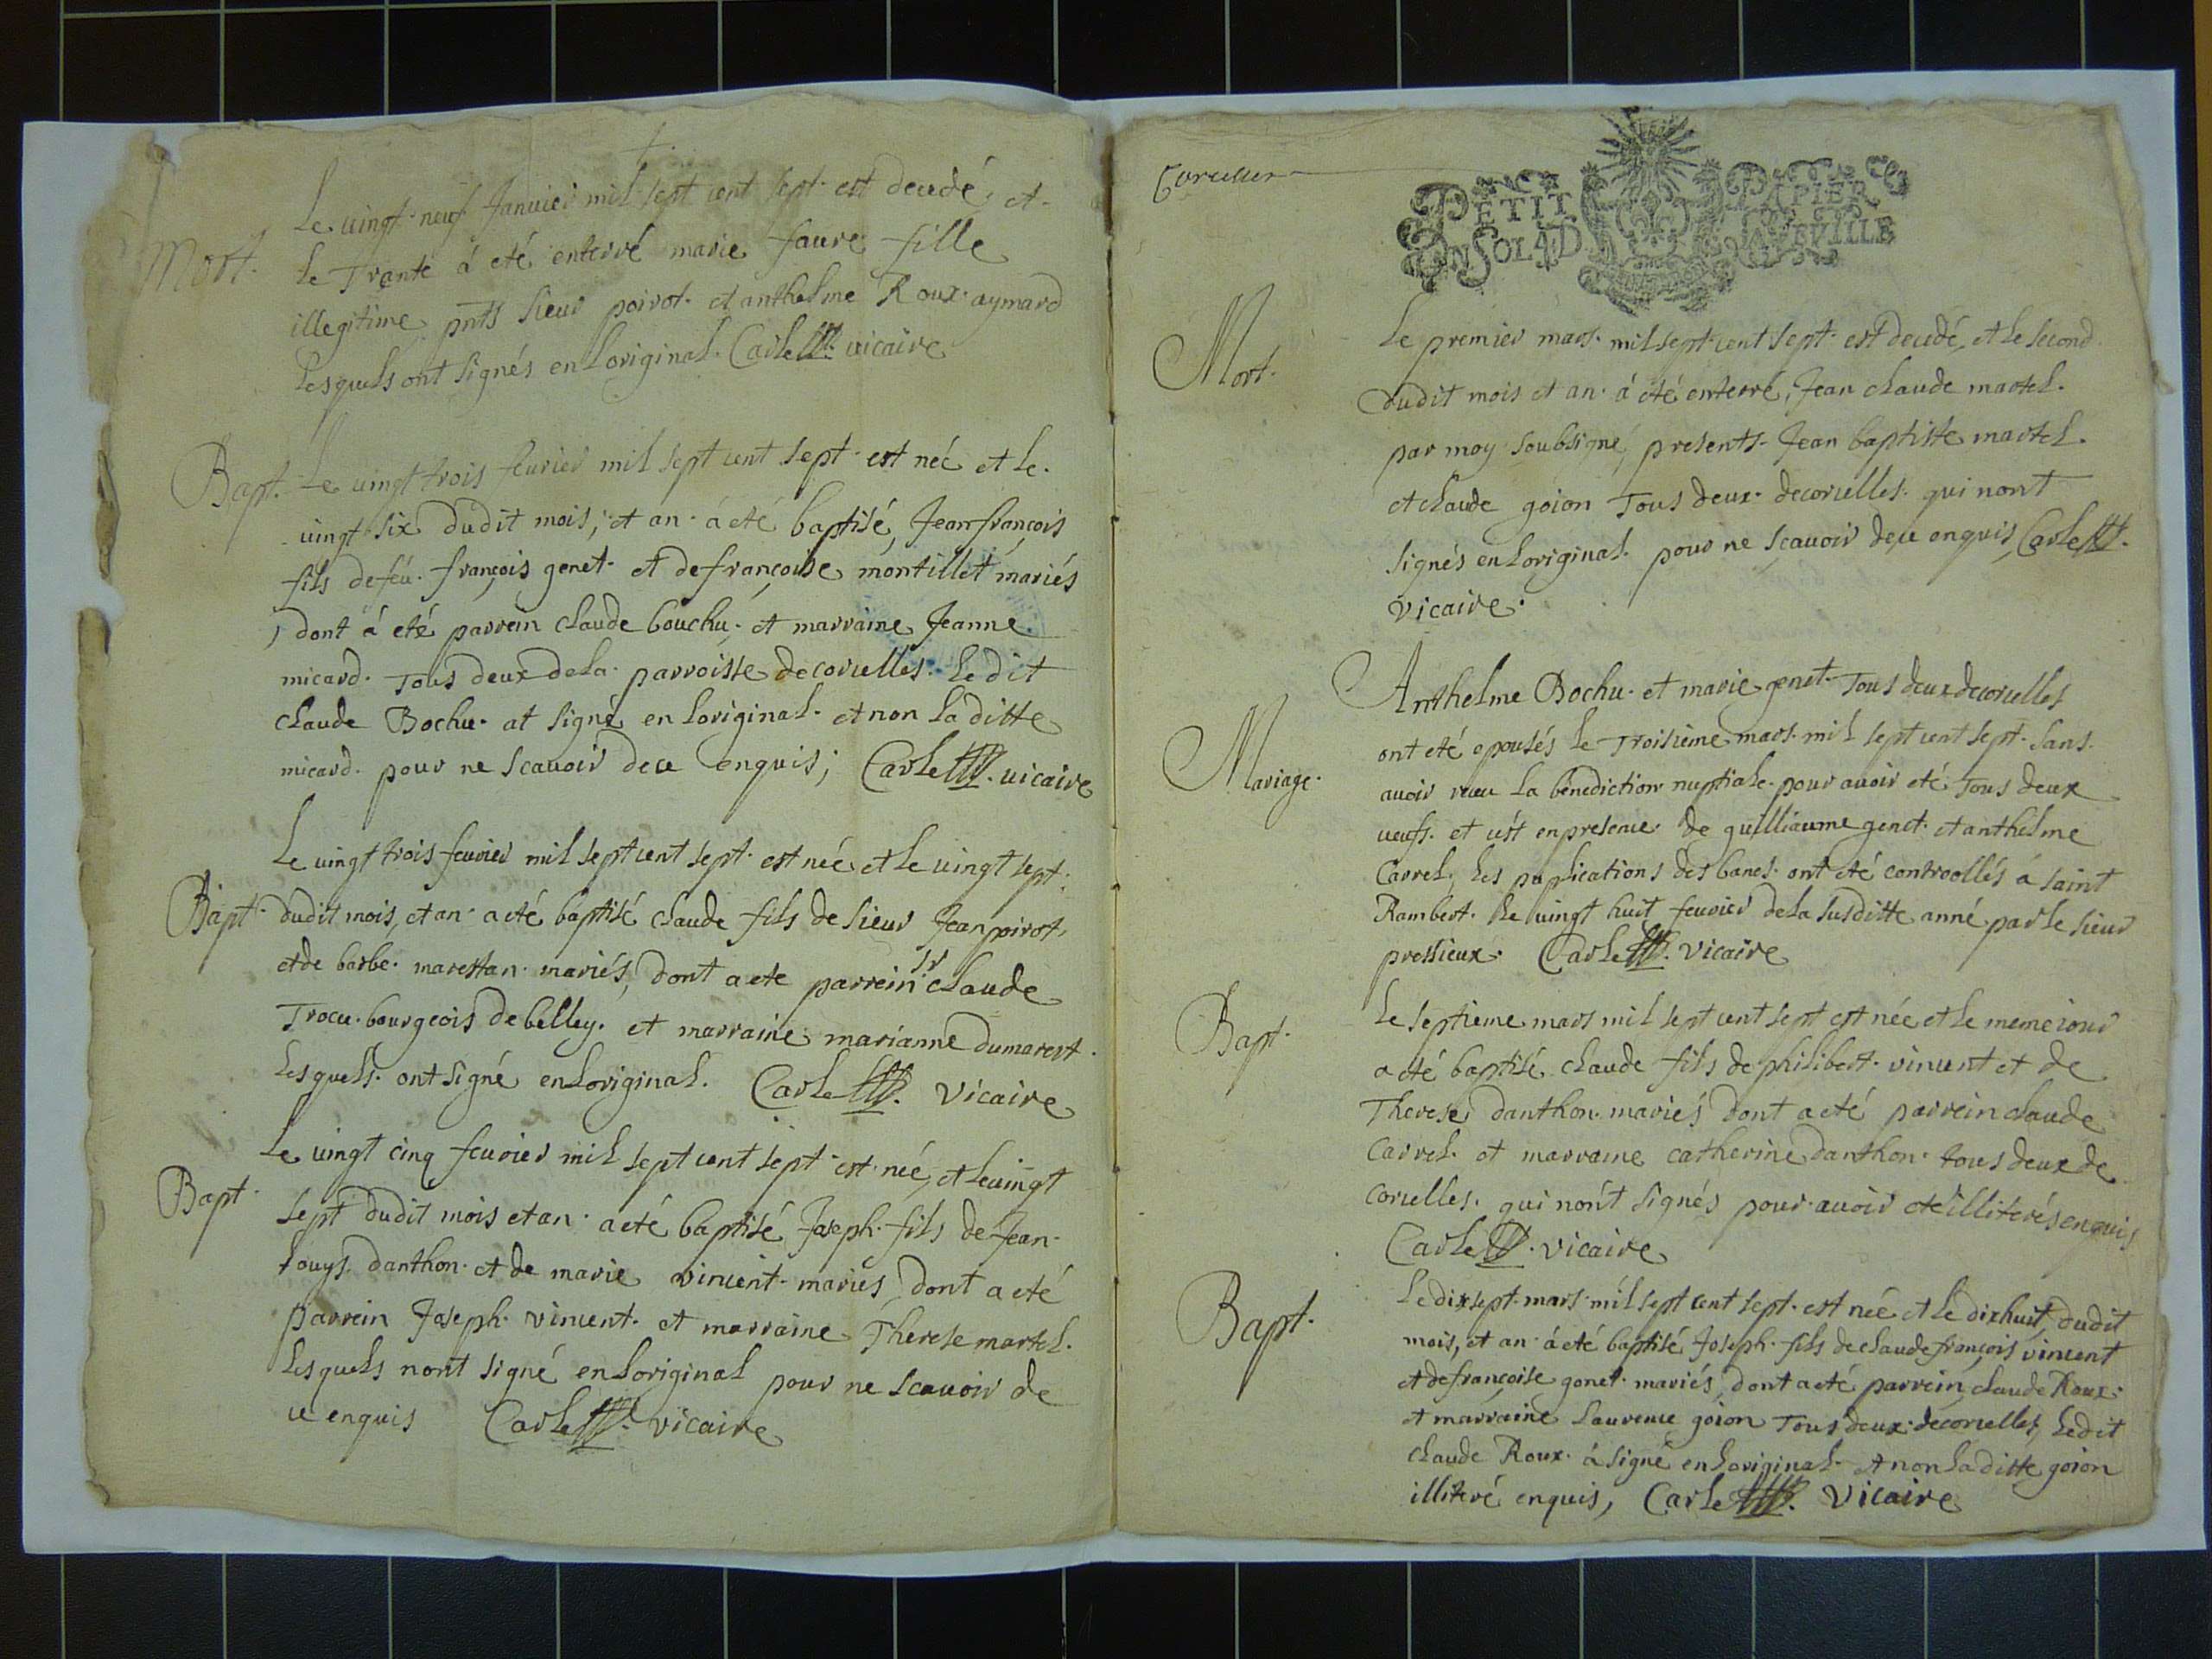 Mort.
Le vingt neuf Janvier mil sept cent sept est decedé, et
le Trante á eté enterré marie faure fille
illegitime, pnts sieur poirot. et anthelme Roux aymard
lesquels ont signés en loriginal. Carle vicaire
Bapt.
Le vingt trois feurier mil sept cent sept est née et le
vingt six dudit mois, et an á eté baptisé, Jean françois
fils de feu françois genet et de françoise montillet mariés
, dont á eté parrein claude bouchu et marraine Jeanne
micard. Tous deux de la parroisse de corcelles. Ledit
claude Bochu at signé en loriginal et non la ditte
micard. pour ne scauoir de ce enquis; Carle vicaire
Bapt.
Le vingt trois feurier mil sept cent sept est née et le vingt sept
dudit mois, et an a eté baptisé claude fils de sieur Jean poirot,
et de barbe marestan mariés, dont a ete parrein sr claude
Trocu bourgeois de belley. et marraine marianne dumarest.
lesquels ont signé en loriginal. Carle vicaire
Bapt.
Le vingt cinq feurier mil sept cent sept est née, et le vingt
sept dudit mois et an a eté baptisé Joseph fils de Jean
louys danthon et de marie vincent mariés, dont a eté
parrein Joseph vincent. et marraine Therese martel.
lesquels nont signé en loriginal pour ne scauoir de
ce enquis Carle vicaire
PETIT PAPIER
EN SOL 4 D LA FEVILLE
Mort.
Le premier mars mil sept cent sept est decedé, et le second
dudit mois et an á eté enterré, Jean claude martel.
par moy soubsigné, presents Jean baptiste martel.
et claude goion Tous deux de corcelles qui nont
signés en loriginal. pour ne scauoir de ce enquis, Carle
vicaire.
Mariage.
Anthelme Bochu et marie genet Tous deux de corcelles
ont eté epousés le Troisieme mars mil sept cent sept sans
auoir receu la benediction nuptiale pour auoir eté Tous deux
ueufs. et cest en presence de guilliaume genet et anthelme
Carrel, les puplications des bancs ont eté controollés á saint
Rambert. le vingt huit feurier de la susditte anné par le sieur
pressieux. Carle vicaire
Bapt.
Le septieme mars mil sept cent sept est née et le meme iour
a eté baptisé claude fils de philibert vincent et de
Therese danthon mariés dont a eté parrein claude
Carrel et marraine catherine danthon tous deux de
corcelles. qui nont signés pour auoir eté illiterés enquis
Carle vicaire
Bapt.
Le dix sept mars mil sept cent sept est née et le dix huit, dudit
mois, et an á eté baptisé Joseph fils de claude françois vincent
et de françoise genet mariés, dont a eté parrein claude Roux
et marraine laurence goion Tous deux de corcelles, ledit
claude Roux á signé en loriginal et non la ditte goion
illiteré enquis, Carle vicaire